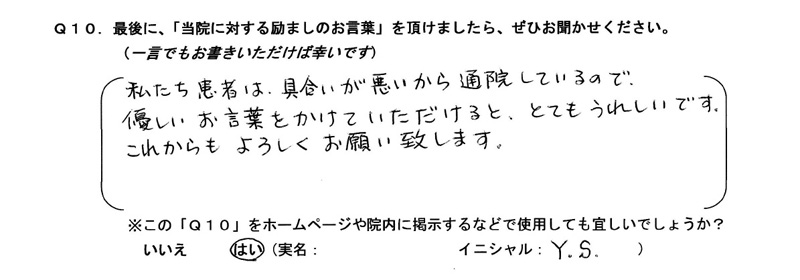 Q10．最後に、「当院に対する励ましのお言葉」を頂けましたら、ぜひお聞かせください。
（一言でもお書きいただけば幸いです）
私たち患者は、具合いが悪いから通院しているので、
優しいお言葉をかけていただけると、とてもうれしいです。
これからもよろしくお願い致します。
※この「Q10」をホームページや院内に掲示するなどで使用しても宜しいでしょうか？
いいえ　はい（実名：　イニシャル：Y.S.　）